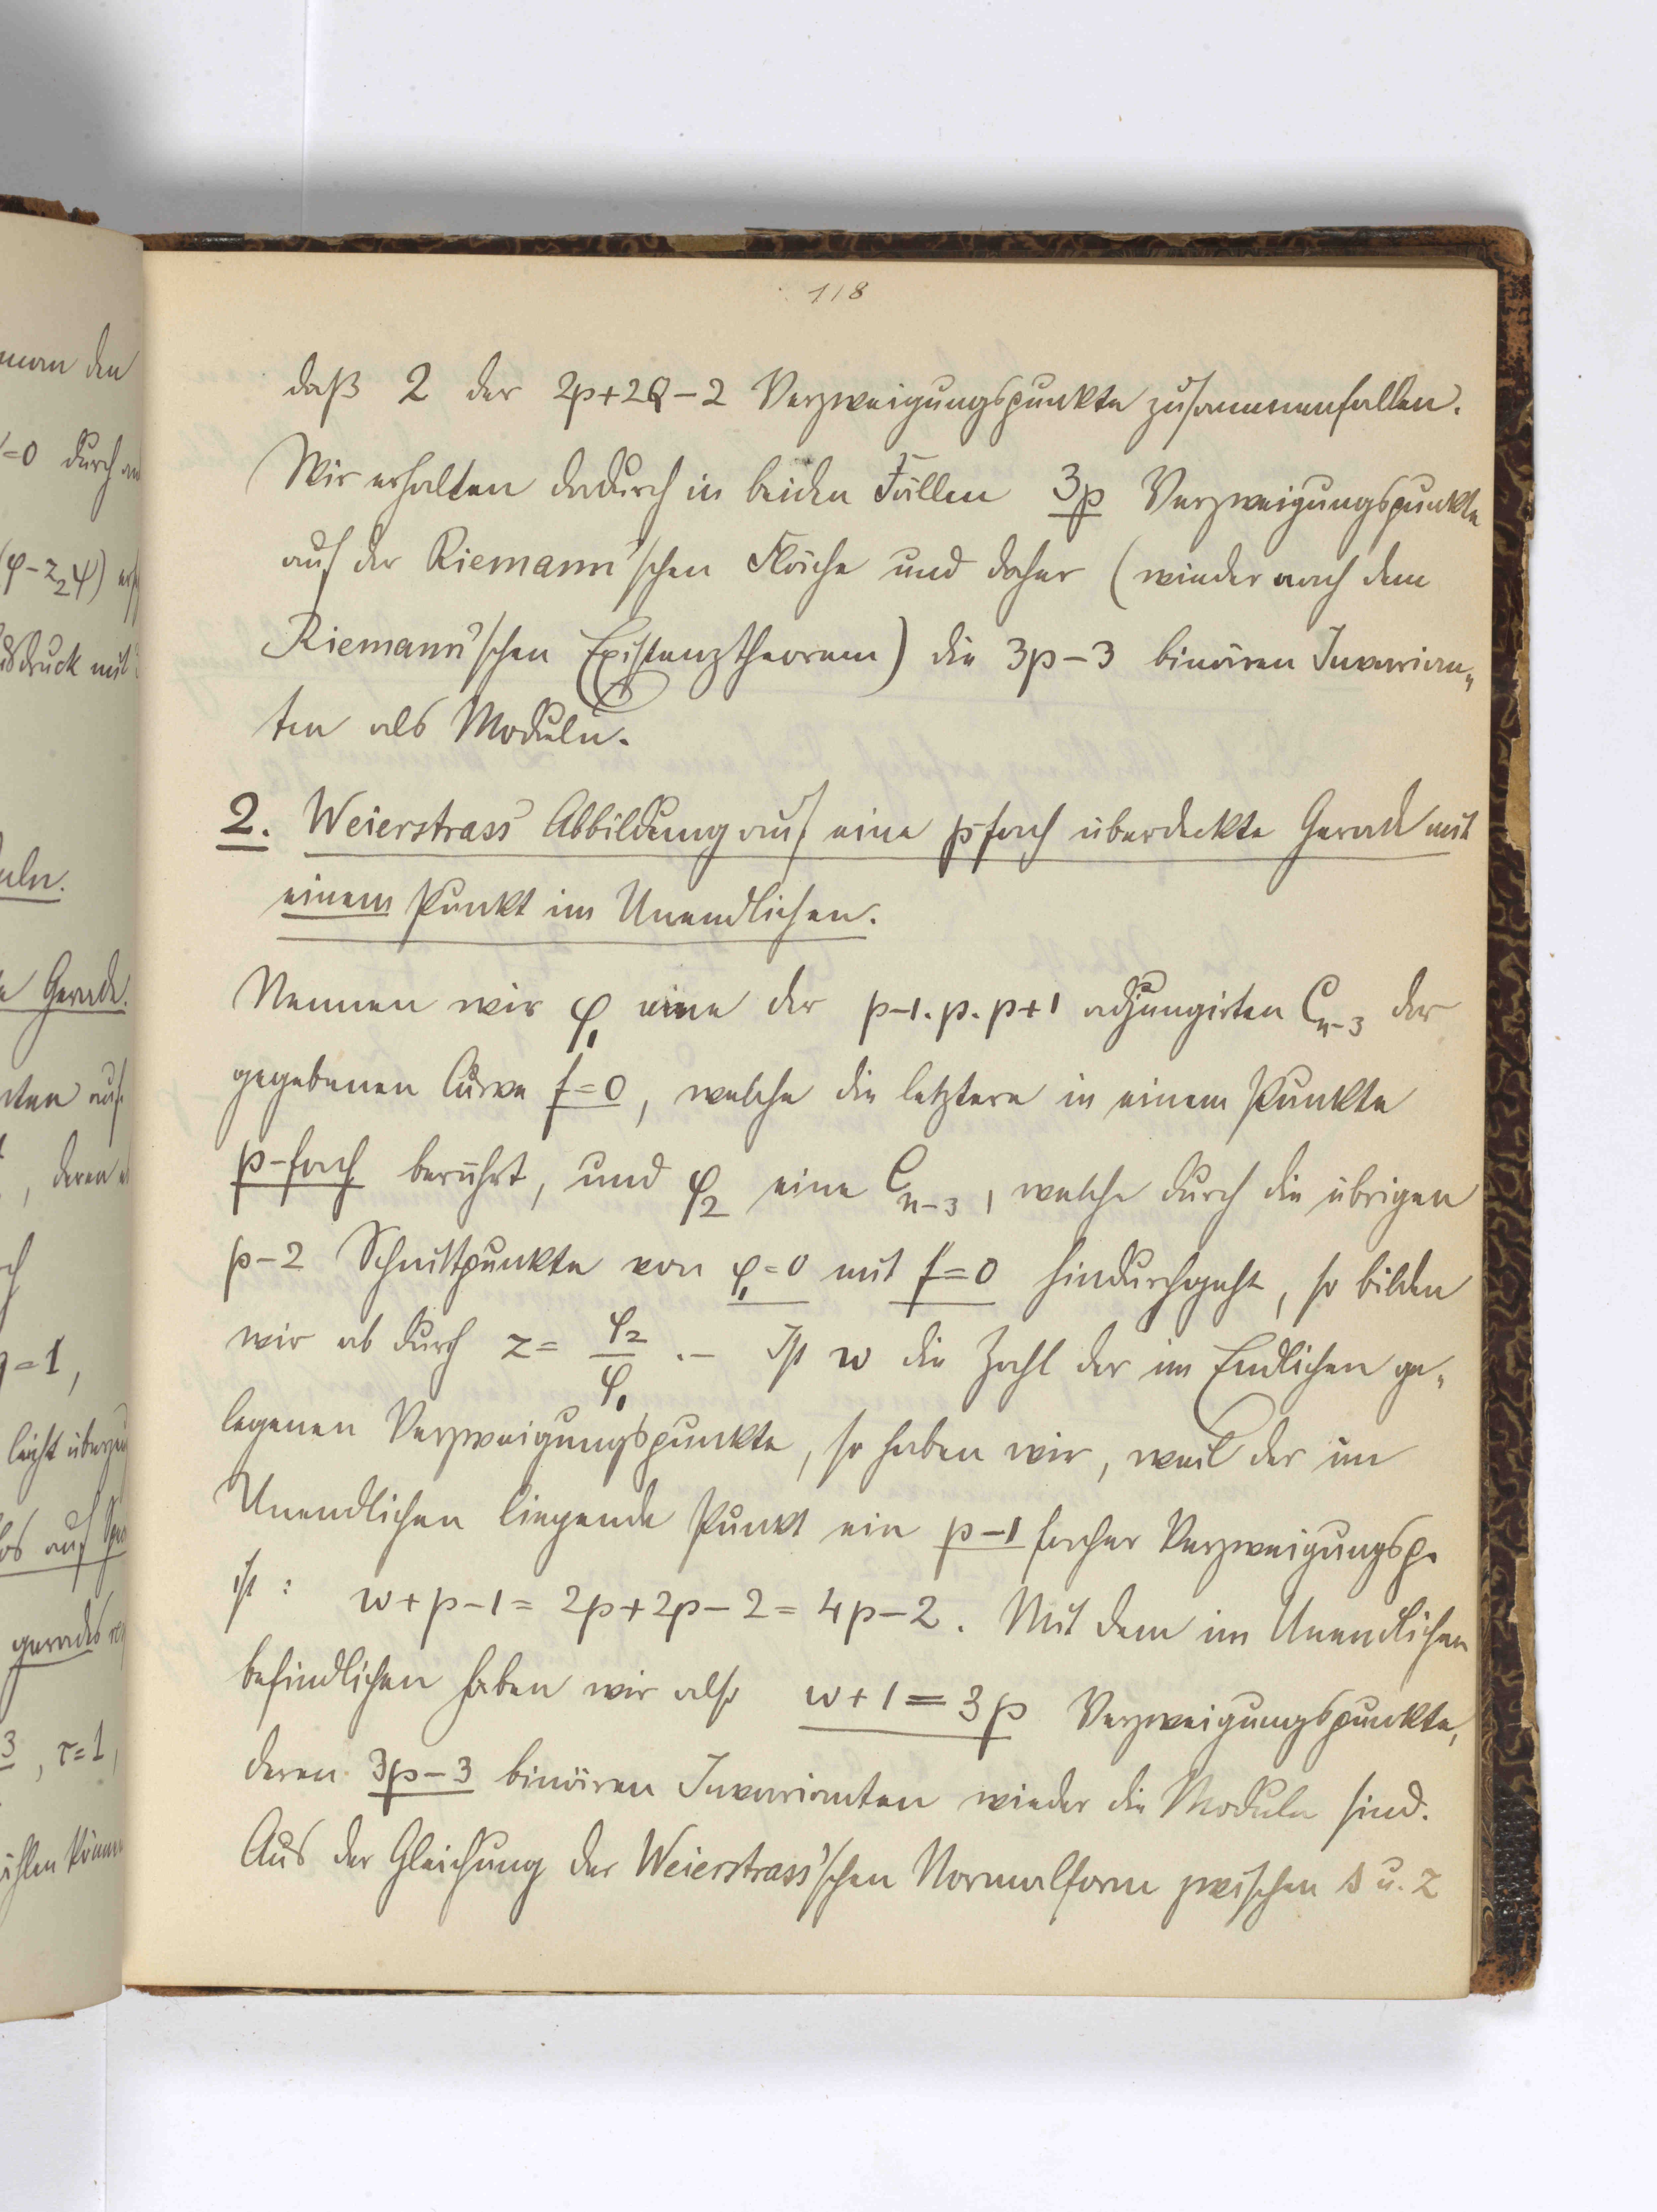 118
daß 2 der 2p+2Q-2 Verzweigungspunkte zusammenfallen.
Wir erhalten dadurch in beiden Fällen 3p Verzweigungspunkte
auf der Riemann'schen Fläche und daher (wieder nach dem
Riemann'schen Existenztheorem) die 3p-3 binären Invarian„
ten als Moduln.
2. Weierstrass' Abbildung auf eine p-fach überdeckte Gerade mit
einem Punkt im Unendlichen.
Nennen wir φ₁ eine der p-1.p.p+1 adjungirten Cₙ₋₃ der
gegebenen Curve f=0, welche die letztere in einem Punkte
p-fach berührt, und φ₂ eine Cₙ₋₃, welche durch die übrigen
p-2 Schnittpunkte von φ₁=0 mit f=0 hindurchgeht, so bilden
wir ab durch z = φ₂/φ₁ .- Ist w die Zahl der im Endlichen ge„
legenen Verzweigungspunkte, so haben wir, weil der im
Unendlichen liegende Punkt ein p-1 facher Verzweigungsp.
ist: w+p-1 = 2p+2p-2 = 4p-2. Mit dem im Unendlichen
befindlichen haben wir also w+1 = 3p Verzweigungspunkte,
deren 3p-3 binären Invarianten wieder die Moduln sind.
Aus der Gleichung der Weierstrass'schen Normalform zwischen s u. z
man den
=0 durch
(φ-z₂ψ)
druck mit
uln.
Gerade.
, deren
=1,
leicht
auf
gerades
3, τ=1,